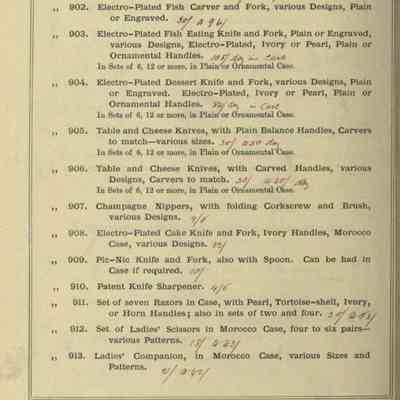 „ 902. Electro-Plated Fish Carver and Fork, various Designs, Plain
or Engraved.
„ 903. Electro-Plated Fish Eating Knife and Fork, Plain or Engraved,
various Designs, Electro-Plated, Ivory or Pearl, Plain or
Ornamental Handles.
In Sets of 6, 12 or more, in Plain or Ornamental Case.
„ 904. Electro-Plated Dessert Knife and Fork, various Designs, Plain
or Engraved. Electro-Plated, Ivory or Pearl, Plain or
Ornamental Handles.
In Sets of 6, 12 or more, in Plain or Ornamental Case.
„ 905. Table and Cheese Knives, with Plain Balance Handles, Carvers
to match—various sizes.
In Sets of 6, 12 or more, in Plain or Ornamental Case.
„ 906. Table and Cheese Knives, with Carved Handles, various
Designs, Carvers to match.
In Sets of 6, 12 or more, in Plain or Ornamental Case.
„ 907. Champagne Nippers, with folding Corkscrew and Brush,
various Designs.
„ 908. Electro-Plated Cake Knife and Fork, Ivory Handles, Morocco
Case, various Designs.
„ 909. Pic-Nic Knife and Fork, also with Spoon. Can be had in
Case if required. 10/
„ 910. Patent Knife Sharpener. 4/6
„ 911. Set of seven Razors in Case, with Pearl, Tortoise-shell, Ivory,
or Horn Handles; also in sets of two and four.
„ 912. Set of Ladies' Scissors in Morocco Case, four to six pairs—
various Patterns.
„ 913. Ladies' Companion, in Morocco Case, various Sizes and
Patterns.